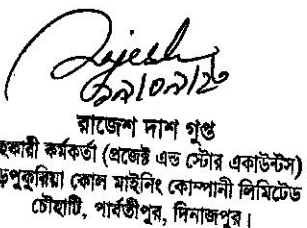 Rajesh
২৯/০৯/২০
রাজেশ দাশ গুপ্ত
হকারী কর্মকর্তা (প্রজেক্ট এন্ড স্টোর একাউন্টস)
ড়পুকুরিয়া কোল মাইনিং কোম্পানী লিমিটেড
চৌহাটি, পার্বতীপুর, দিনাজপুর।